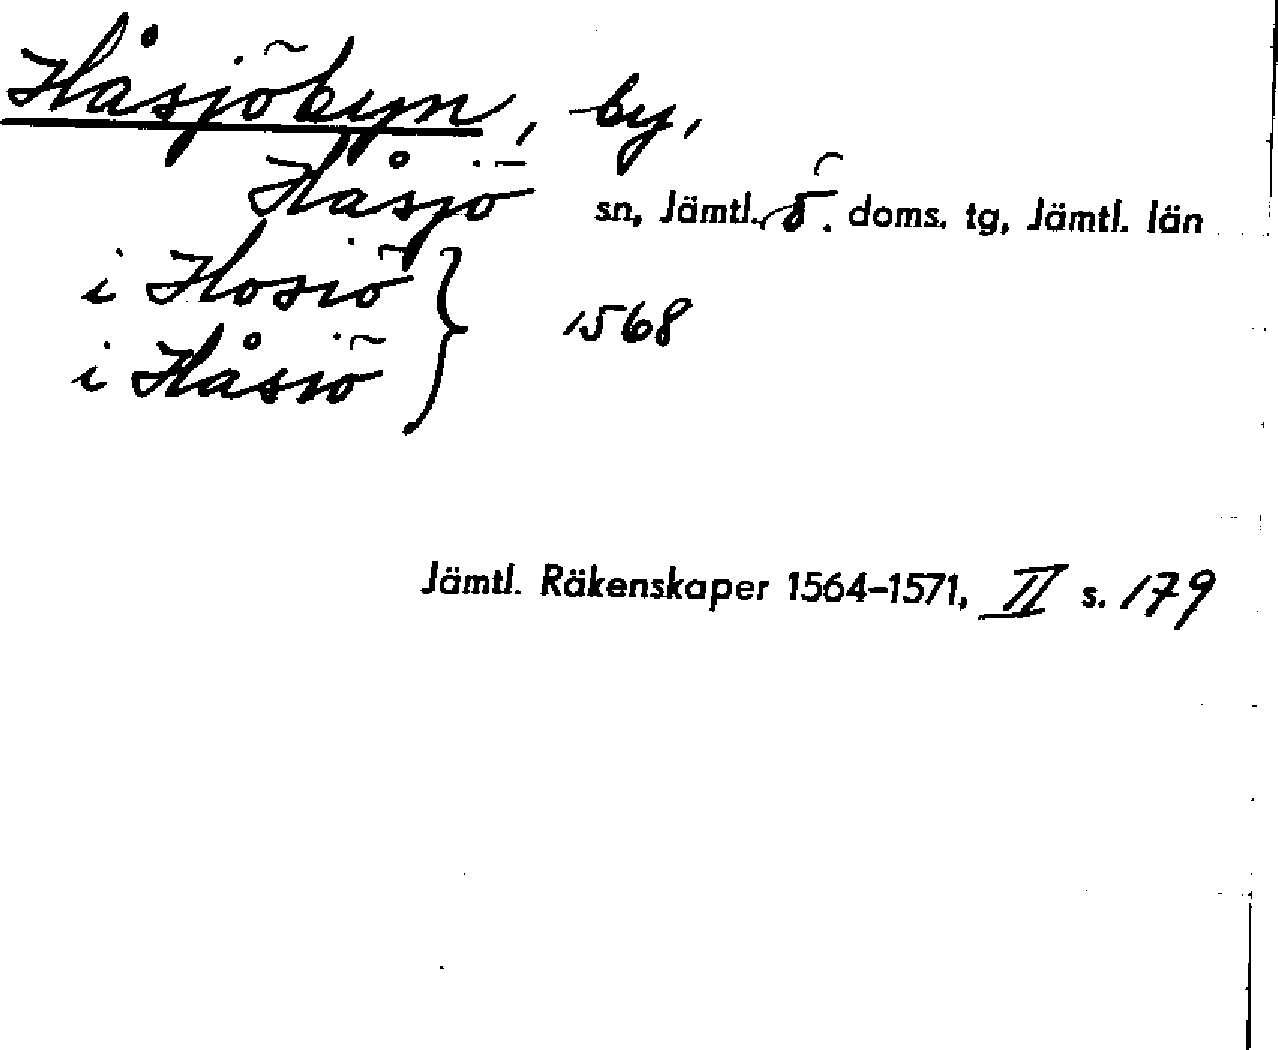 Håsjöbyn, by,
Håsjö sn, Jämtl. ö. doms. tg, Jämtl. län
i Hosiö
i Håsiö } 1568
Jämtl. Räkenskaper 1564–1571, II s. 179